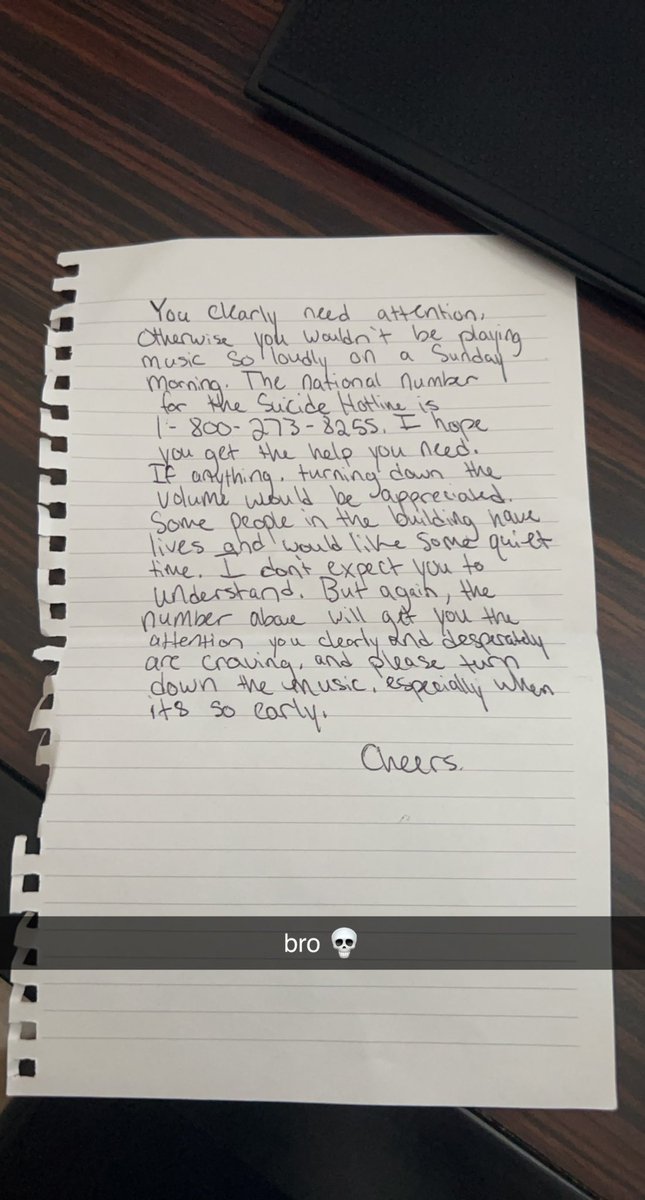 You clearly need attention,
Otherwise you wouldn't be playing
music so loudly on a Sunday
morning. The national number
for the Suicide Hotline is
1-800-273-8255. I hope
you get the help you need.
If anything, turning down the
volume would be appreciated.
Some people in the building have
lives and would like some quiet
time. I don't expect you to
understand. But again, the
number above will get you the
attention you clearly and desperately
are craving, and please turn
down the music, especially when
it's so early.
Cheers.
bro 💀